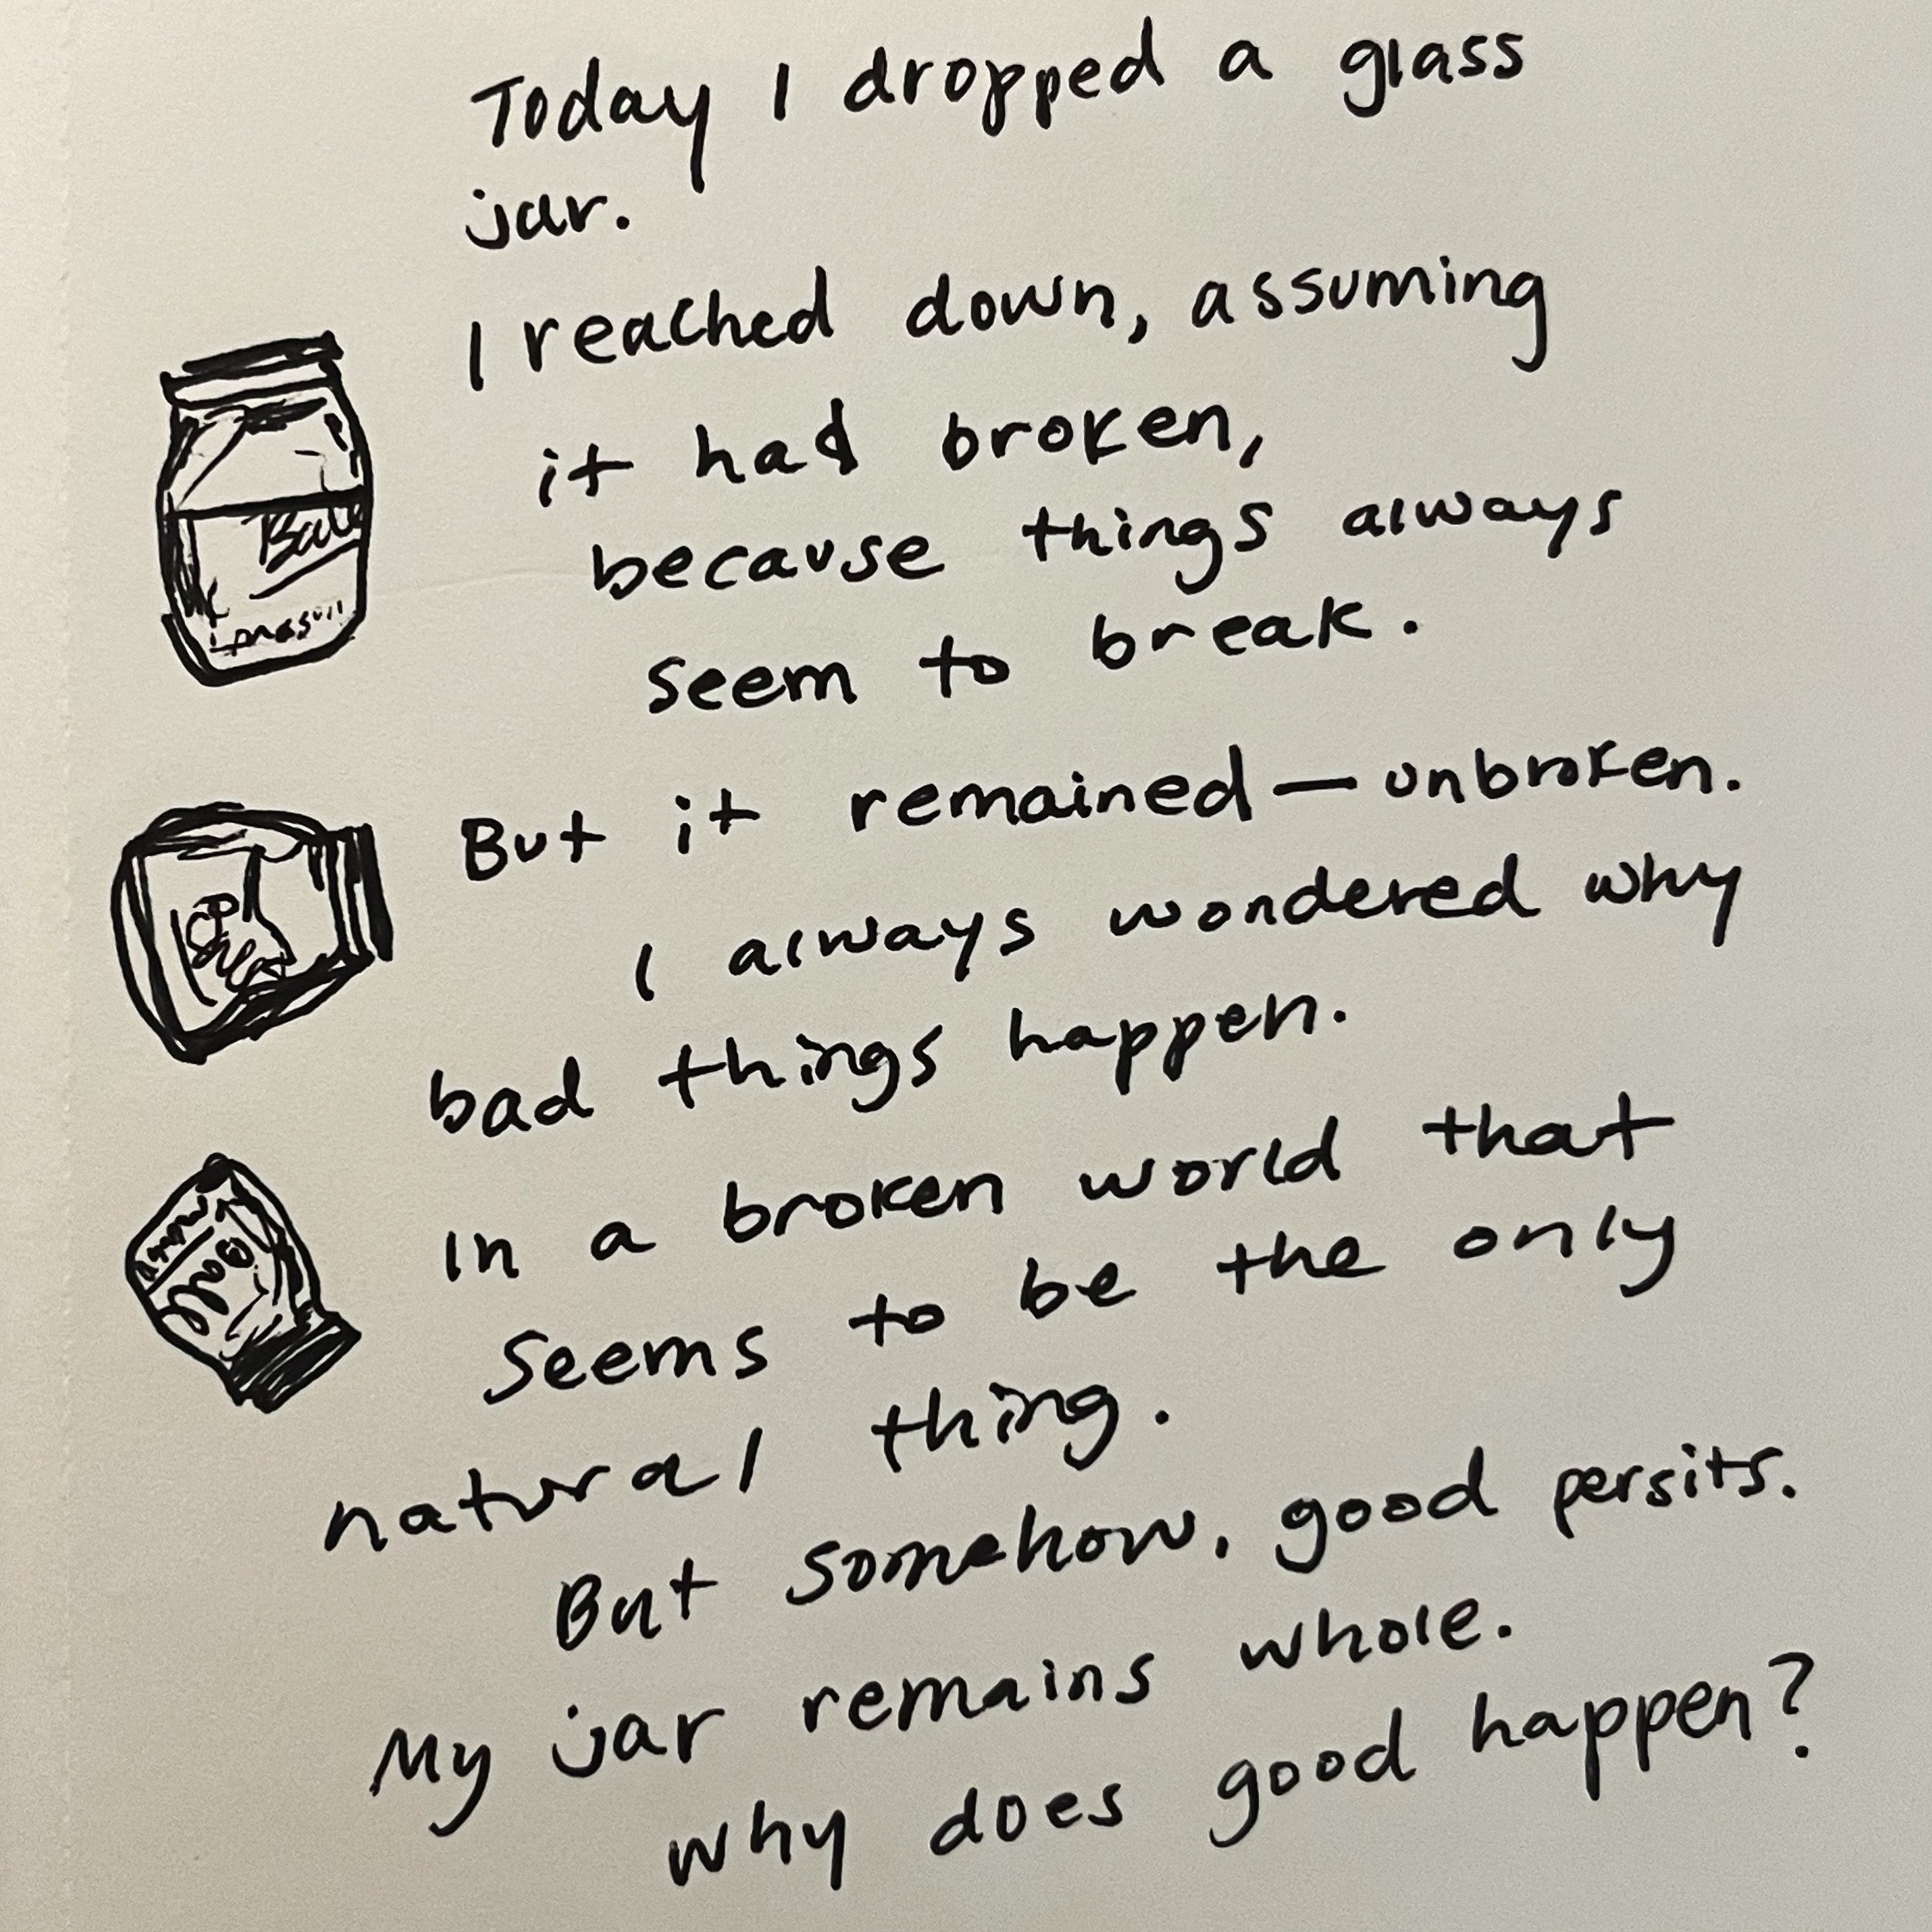 Today I dropped a glass
jar.
I reached down, assuming
it had broken,
because things always
seem to break.
But it remained — unbroken.
I always wondered why
bad things happen.
In a broken world that
seems to be the only
natural thing.
But somehow, good persits.
My jar remains whole.
Why does good happen?